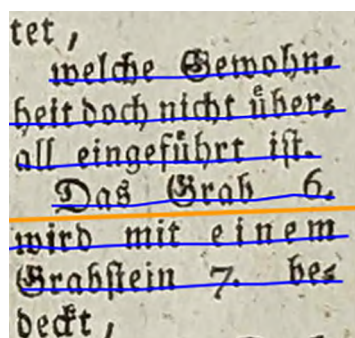 tet,
welche Gewohn⸗
heit doch nicht uͤber⸗
all eingefuͤhrt iſt.
Das Grab 6.
wird mit einem
Grabſtein 7. be⸗
deckt,